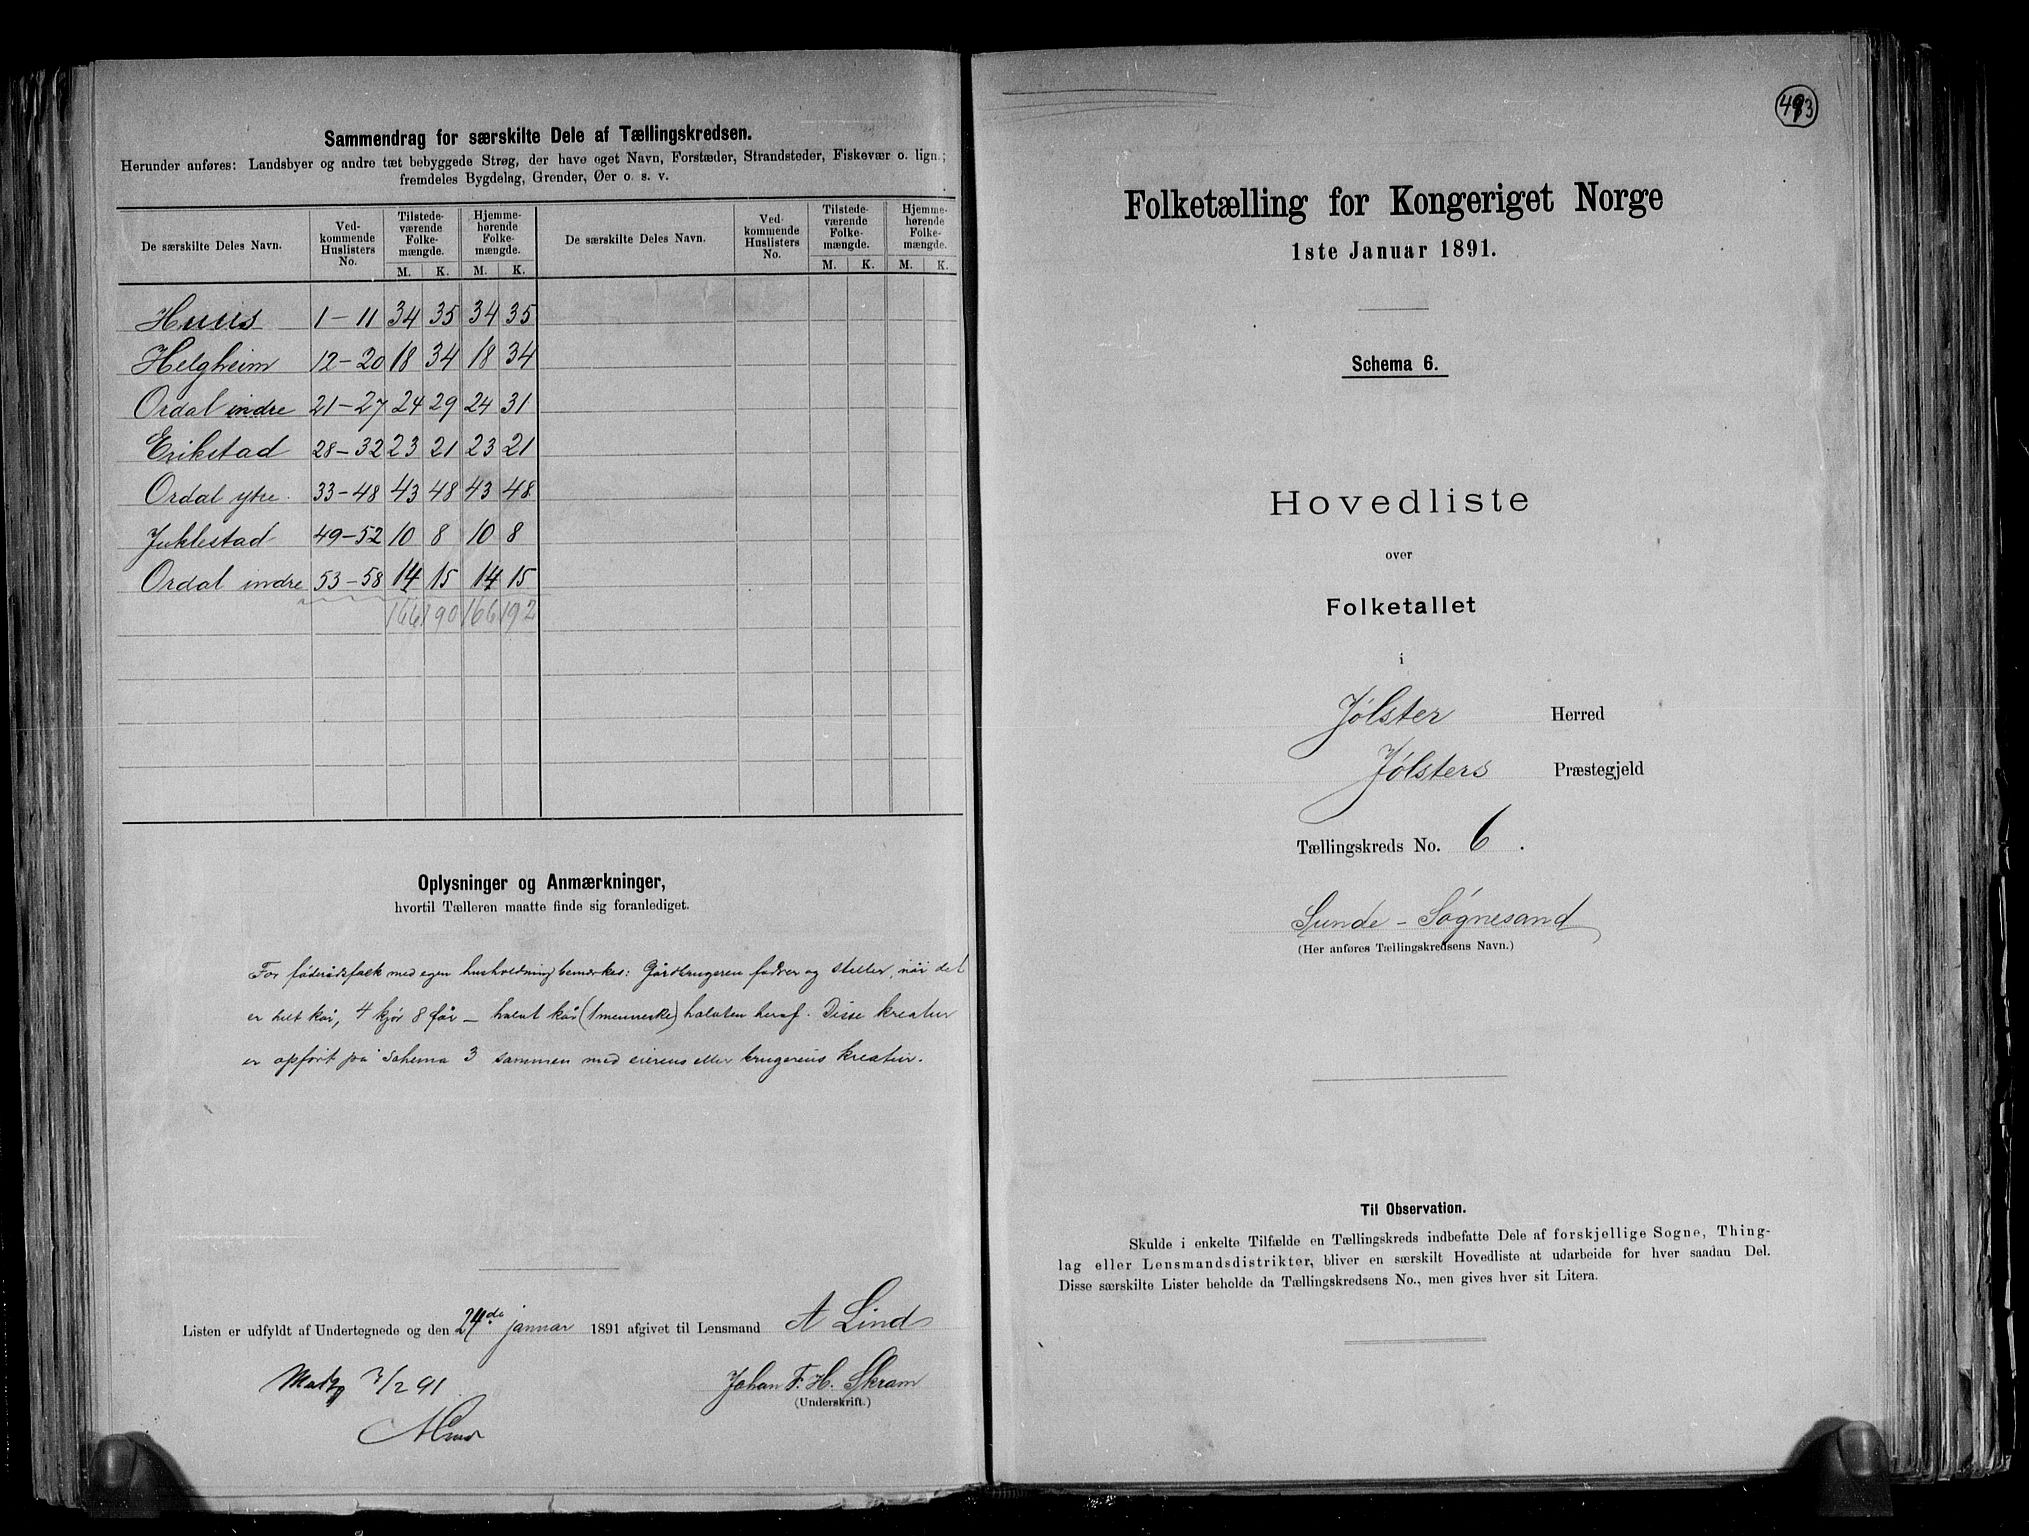 Sammendrag for særskilte Dele af Tællingskredsen.
Herunder anføres: Landsbyer og andre tæt bebyggede Strøg, der have eget Navn, Forstæder, Strandsteder, Fiskevær o. lign.;
fremdeles Bygdelag, Grender, Øer o. s. v.
De særskilte Deles Navn. Ved-kommende Huslisters No. Tilstede-værende Folke-mængde. Hjemme-hørende Folke-mængde. De særskilte Deles Navn. Ved-kommende Huslisters No. Tilstede-værende Folke-mængde. Hjemme-hørende Folke-mængde.
M. K. M. K. M. K. M. K.
Huus 1-11 34 35 34 35
Helgheim 12-20 18 34 18 34
Ordal indre 21-27 24 29 24 31
Erikstad 28-32 23 21 23 21
Ordal ytre 33-48 43 48 43 48
Juklestad 49-52 10 8 10 8
Ordal indre 53-58 14 15 14 15
166 190 166 192
Oplysninger og Anmærkninger,
hvortil Tælleren maatte finde sig foranlediget.
For føderådsfolk med egen husholdning bemerkes: Gårdbrugeren fodrer og steller, når det
er helt kår, 4 kjør 8 får – halvt kår (1 menneske) halvten heraf. Disse kreatur
er opført på schema 3 sammen med eierens eller brugerens kreatur.
Listen er udfyldt af Undertegnede og den 24de januar 1891 afgivet til Lensmand A Lind
3/2 91
Johan F. H. Skram
(Underskrift.)
493
Folketælling for Kongeriget Norge
1ste Januar 1891.
Schema 6.
Hovedliste
over
Folketallet
i
Jølster Herred
Jølsters Præstegjeld
Tællingskreds No. 6.
Sunde - Søgnesand
(Her anføres Tællingskredsens Navn.)
Til Observation.
Skulde i enkelte Tilfælde en Tællingskreds indbefatte Dele af forskjellige Sogne, Thing-
lag eller Lensmandsdistrikter, bliver en særskilt Hovedliste at udarbeide for hver saadan Del.
Disse særskilte Lister beholde da Tællingskredsens No., men gives hver sit Litera.